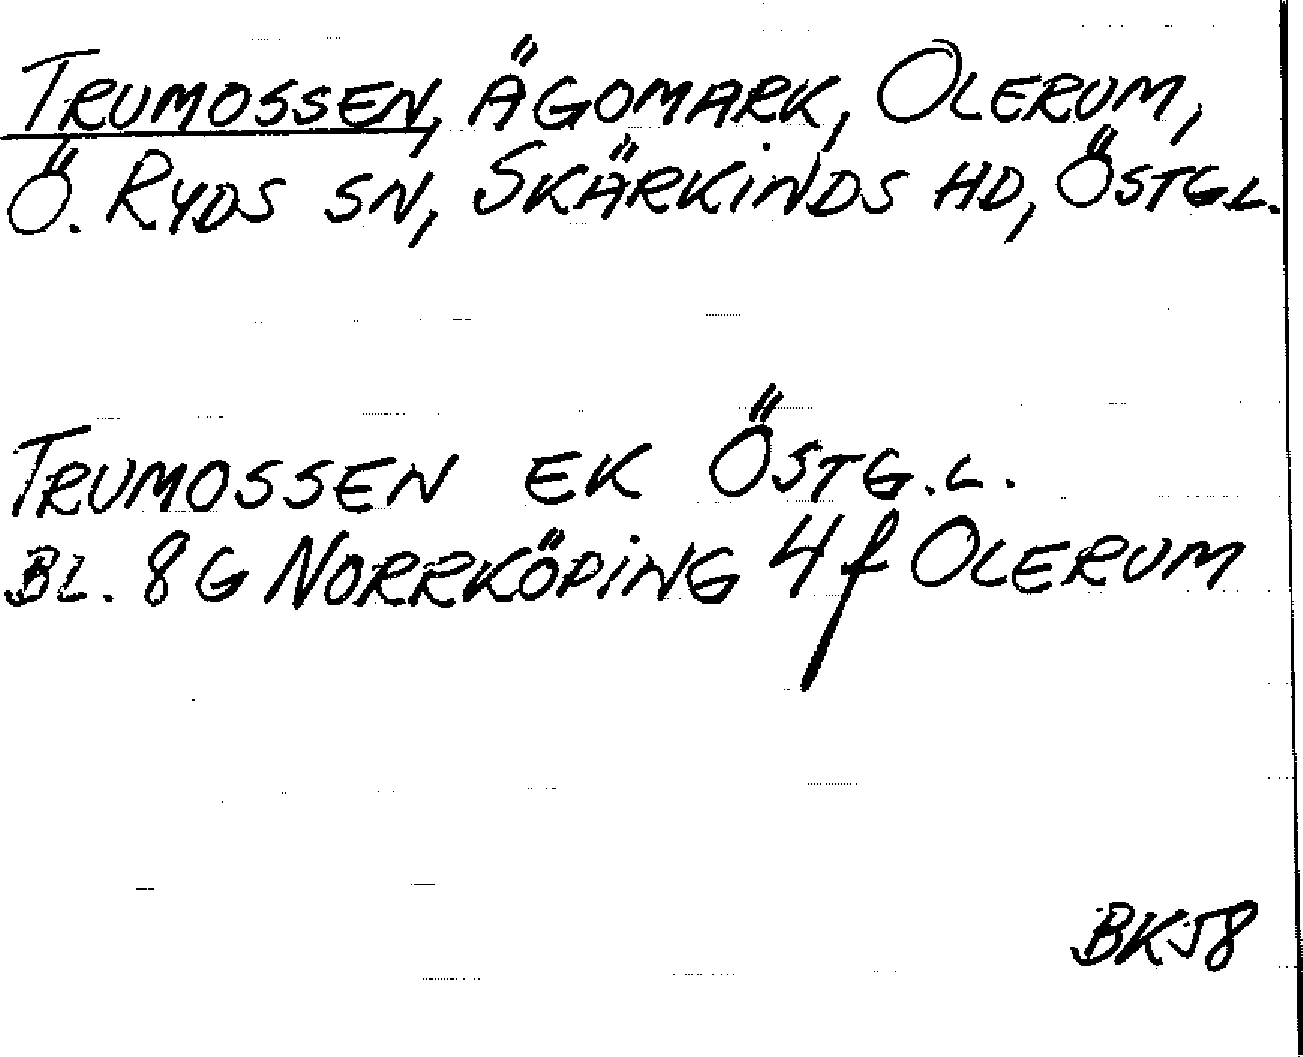 TRUMOSSEN, ÄGOMARK, OLERUM,
Ö. RYDS SN, SKÄRKINDS HD, ÖSTGL.
TRUMOSSEN EK ÖSTG.L.
BL. 8G NORRKÖPING 4f OLERUM
BK58